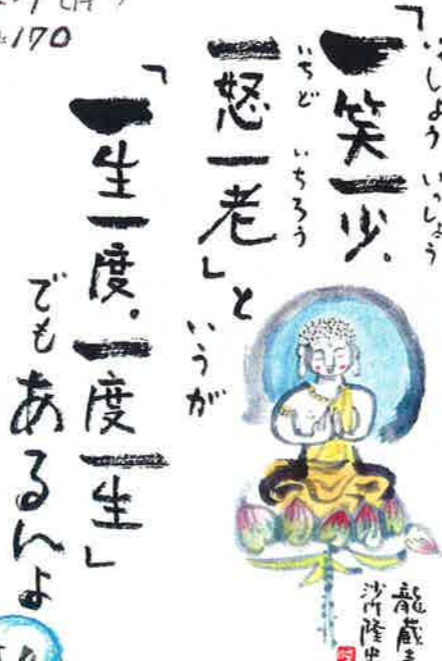 170
「一笑一少。
いっしょう いっしょう
一怒一老」と
いちど いちろう
いうが
「一生一度。一度一生」
でもあるんよ
龍蔵
沙門隆